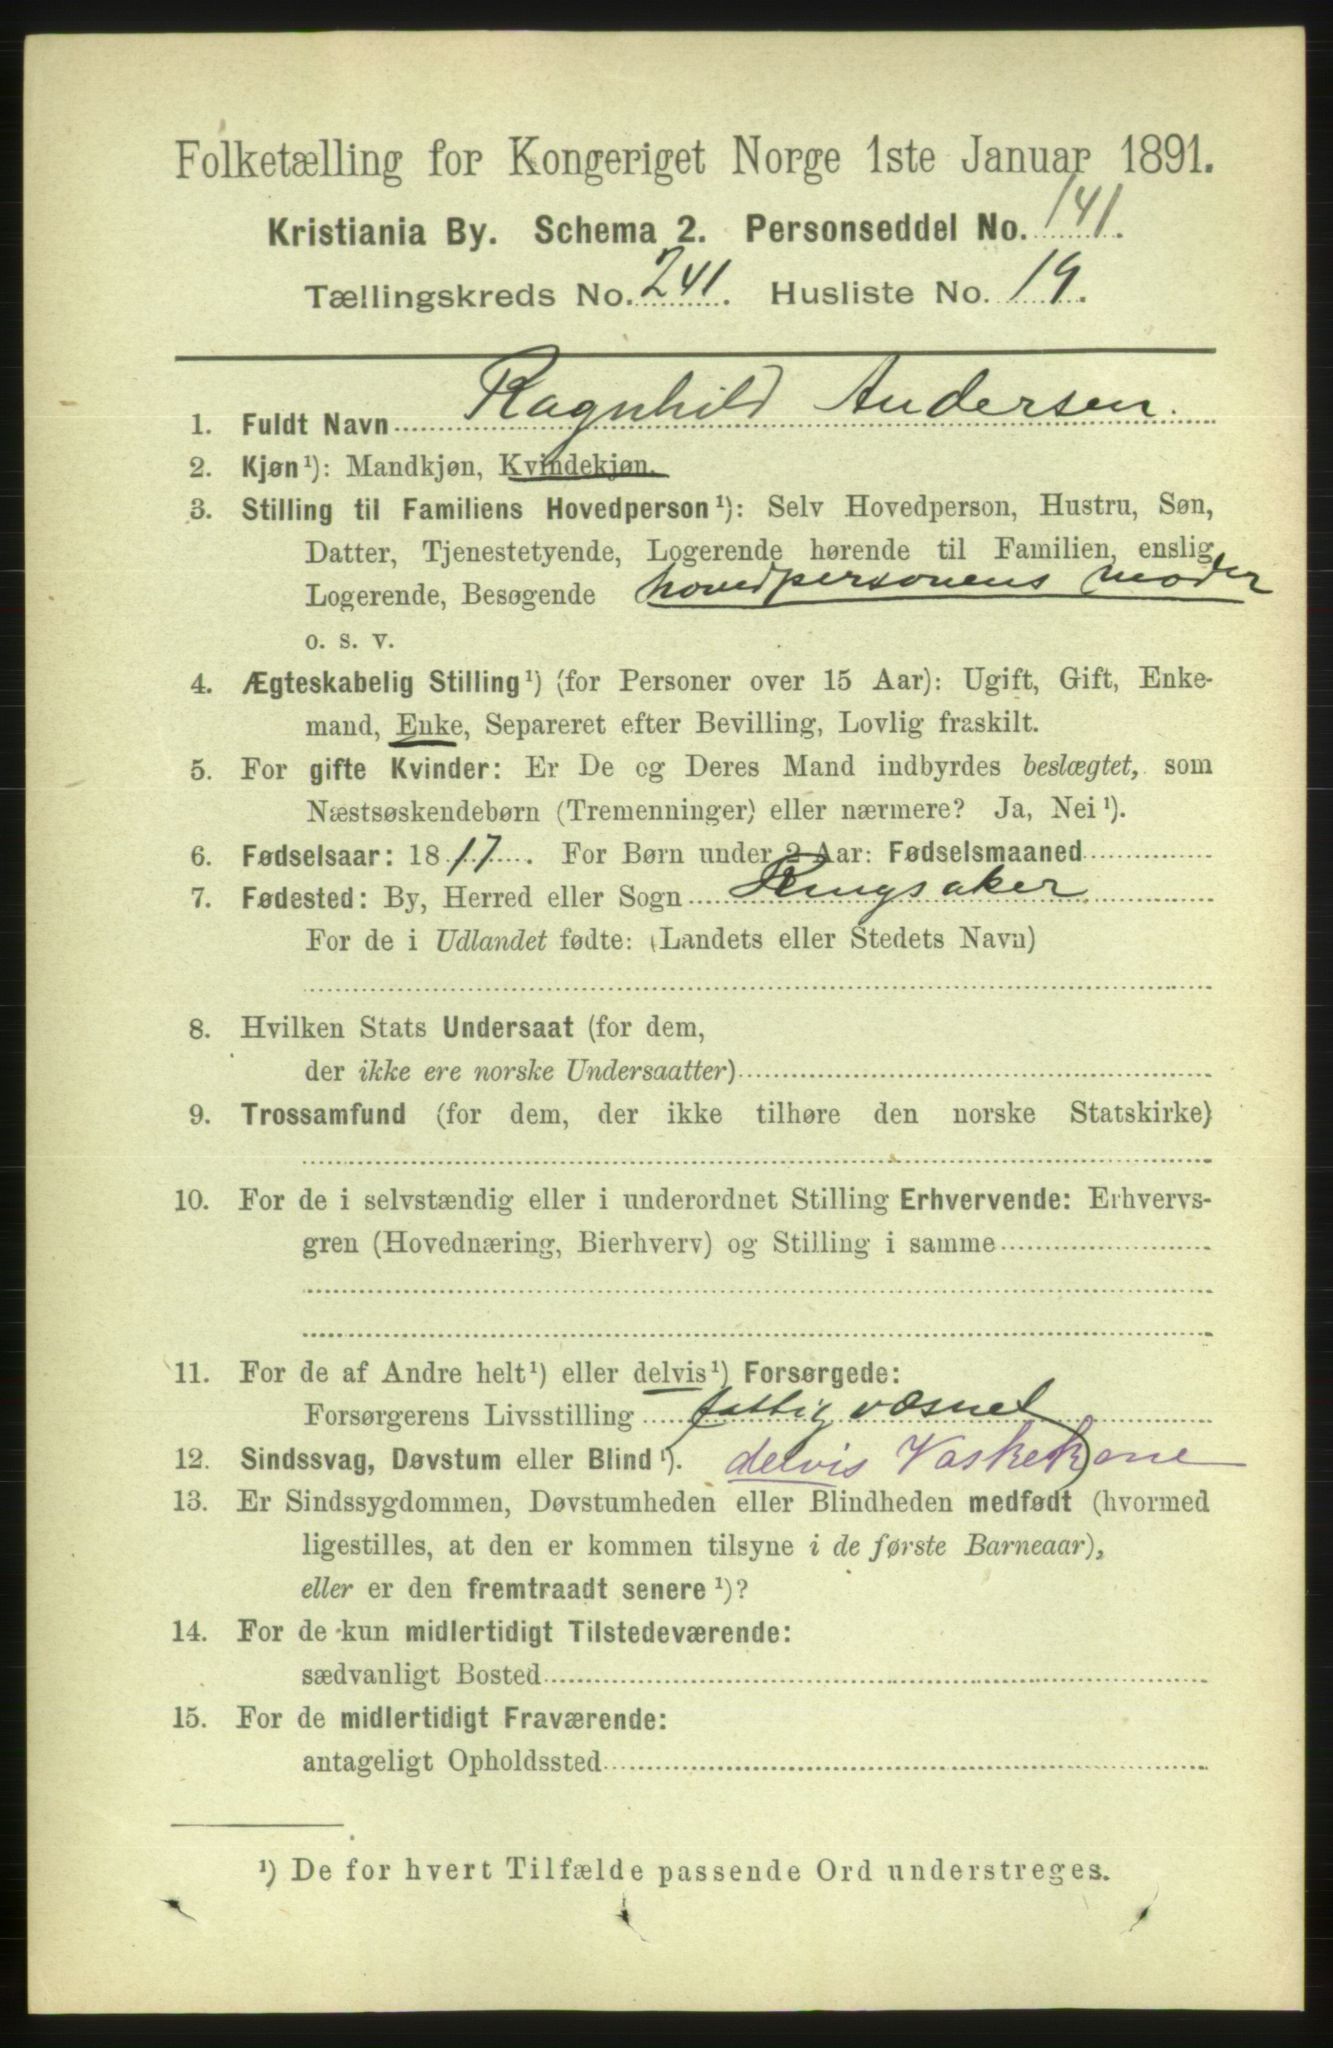 Folketælling for Kongeriget Norge 1ste Januar 1891.
Kristiania By. Schema 2. Personseddel No. 141.
Tællingskreds No. 241. Husliste No. 19.
1. Fuldt Navn Ragnhild Andersen.
2. Kjøn¹): Mandkjøn, Kvindekjøn.
3. Stilling til Familiens Hovedperson¹): Selv Hovedperson, Hustru, Søn,
Datter, Tjenestetyende, Logerende hørende til Familien, enslig
Logerende, Besøgende hovedpersonens moder
o. s. v.
4. Ægteskabelig Stilling¹) (for Personer over 15 Aar): Ugift, Gift, Enke-
mand, Enke, Separeret efter Bevilling, Lovlig fraskilt.
5. For gifte Kvinder: Er De og Deres Mand indbyrdes beslægtet, som
Næstsøskendebørn (Tremenninger) eller nærmere? Ja, Nei¹).
6. Fødselsaar: 1817. For Børn under 2 Aar: Fødselsmaaned
7. Fødested: By, Herred eller Sogn Ringsaker
For de i Udlandet fødte: (Landets eller Stedets Navn)
8. Hvilken Stats Undersaat (for dem,
der ikke ere norske Undersaatter)
9. Trossamfund (for dem, der ikke tilhøre den norske Statskirke)
10. For de i selvstændig eller i underordnet Stilling Erhvervende: Erhvervs-
gren (Hovednæring, Bierhverv) og Stilling i samme
11. For de af Andre helt¹) eller delvis¹) Forsørgede:
Forsørgerens Livsstilling fattigvæsnet
12. Sindssvag, Døvstum eller Blind¹). delvis Vaskekone
13. Er Sindssygdommen, Døvstumheden eller Blindheden medfødt (hvormed
ligestilles, at den er kommen tilsyne i de første Barneaar),
eller er den fremtraadt senere¹)?
14. For de kun midlertidigt Tilstedeværende:
sædvanligt Bosted
15. For de midlertidigt Fraværende:
antageligt Opholdssted
¹) De for hvert Tilfælde passende Ord understreges.